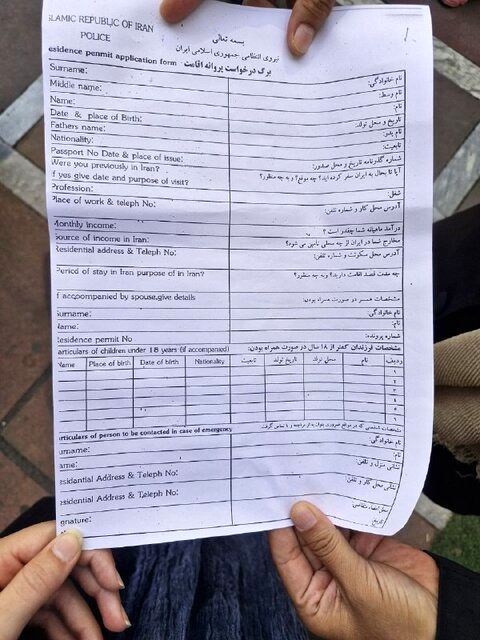 ISLAMIC REPUBLIC OF IRAN
POLICE
بسمه تعالی
نیروی انتظامی جمهوری اسلامی ایران
1
esidence permit application form برگ درخواست پروانه اقامت
Surname: نام خانوادگی:
Middle name: نام وسط:
Name: نام:
Date & place of Birth: تاریخ و محل تولد:
Fathers name: نام پدر:
Nationality: تابعیت:
Passport No Date & place of issue: شماره گذرنامه تاریخ و محل صدور:
Were you previously in Iran? آیا تا بحال به ایران سفر کرده اید؟ چه موقع؟ و به چه منظور؟
If yes give date and purpose of visit?
Profession: شغل:
Place of work & teleph No: آدرس محل کار و شماره تلفن:
Monthly income: درآمد ماهیانه شما چقدر است؟
Source of income in Iran: مخارج شما در ایران از چه محلی تأمین می شود؟
Residential address & Teleph No: آدرس محل سکونت و شماره تلفن:
Period of stay in Iran purpose of in Iran? چه مدت قصد اقامت دارید؟ وبه چه منظور؟
f accompanied by spouse,give details مشخصات همسر در صورت همراه بودن:
Surname: نام خانوادگی:
Name: نام:
Residence permit No شماره پرونده:
articulars of children under 18 years (if accompanied) مشخصات فرزندان کمتر از ۱۸ سال در صورت همراه بودن:
Name Place of birth Date of birth Nationality تابعیت تاریخ تولد محل تولد نام ردیف
۱
۲
۳
۴
۵
۶
articulars of person to be contacted in case of emergency مشخصات شخصی که در مواقع ضروری بتوان به او مراجعه و یا تماس گرفت.
urname: نام خانوادگی:
ame: نام:
esidential Address & Teleph No: نشانی منزل و تلفن:
esidential Address & Teleph No: نشانی محل کار و تلفن:
gnature: محل امضاء متقاضی:
تاریخ: